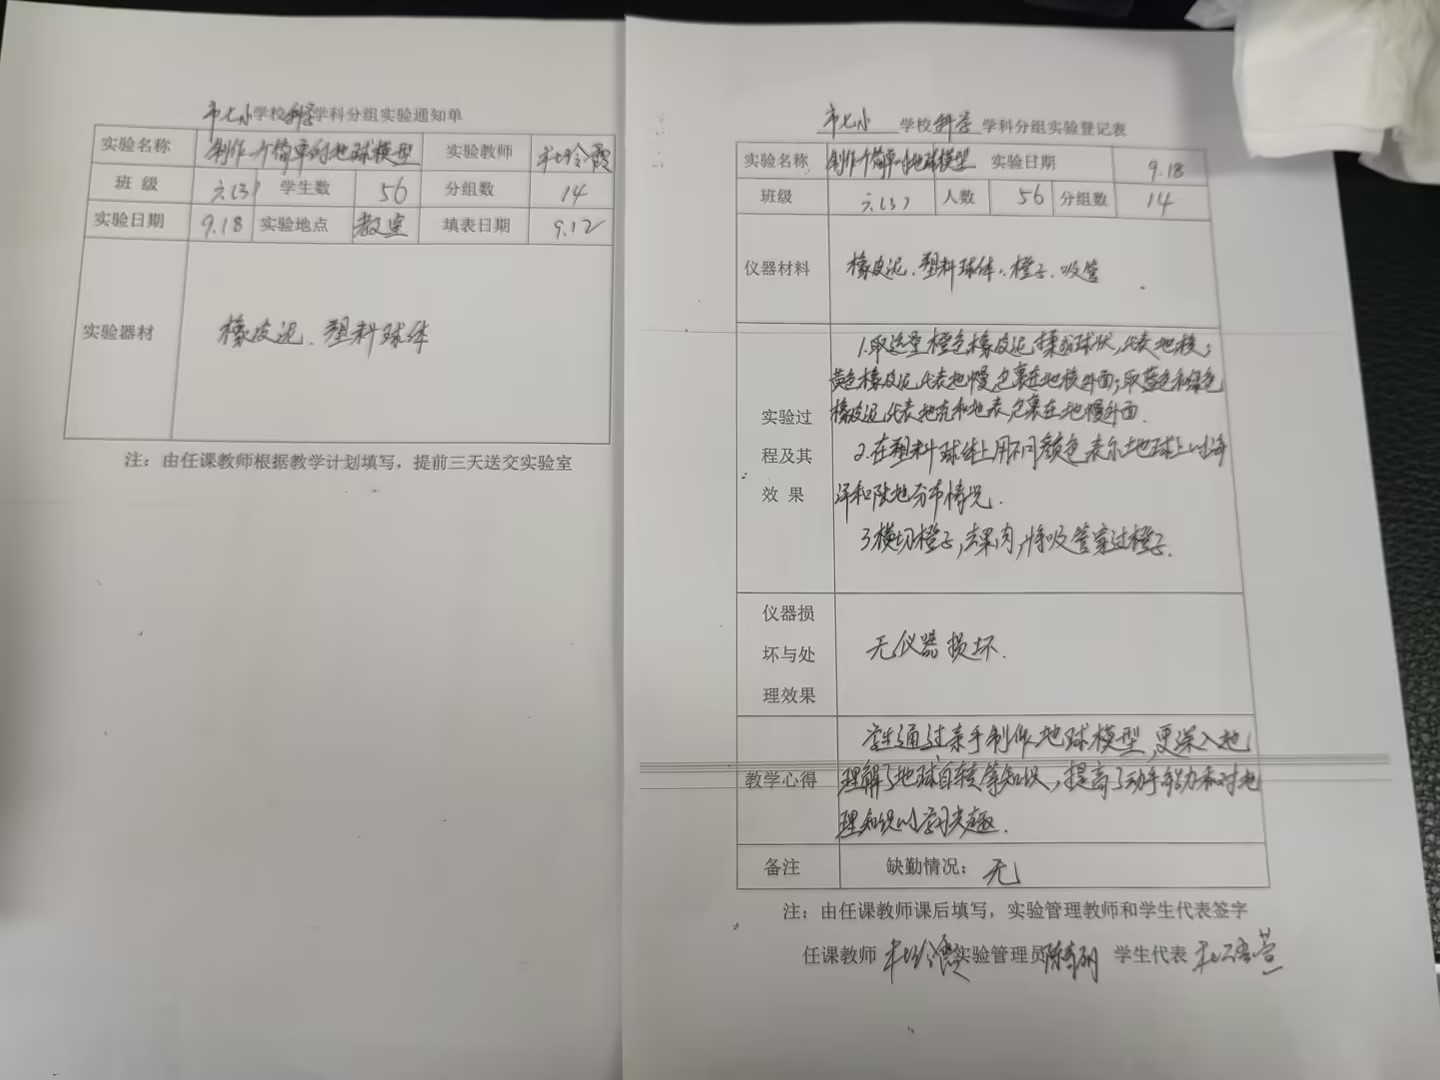 市七小学校科学学科分组实验通知单
实验名称 制作一个简单的地球模型 实验教师
班 级 六(3) 学生数 56 分组数 14
实验日期 9.18 实验地点 教室 填表日期 9.12
实验器材 橡皮泥、塑料球体
注：由任课教师根据教学计划填写，提前三天送交实验室
市七小 学校科学 学科分组实验登记表
实验名称 制作一个简单的地球模型 实验日期 9.18
班级 六(3) 人数 56 分组数 14
仪器材料 橡皮泥、塑料球体、橙子、吸管
实验过
程及其
效 果
1.取适量橙色橡皮泥揉成球状,代表地核;
黄色橡皮泥代表地幔,包裹在地核外面;取蓝色和绿色
橡皮泥代表地壳和地表,包裹在地幔外面.
2.在塑料球体上用不同颜色表示地球上的海
洋和陆地分布情况.
3.横切橙子,去果肉,将吸管穿过橙子.
仪器损
坏与处
理效果
无仪器损坏.
教学心得
学生通过亲手制作地球模型,更深入地
理解了地球自转等知识,提高了动手能力和对地
理知识的学习兴趣.
备注 缺勤情况：无
注：由任课教师课后填写，实验管理教师和学生代表签字
任课教师 实验管理员 学生代表